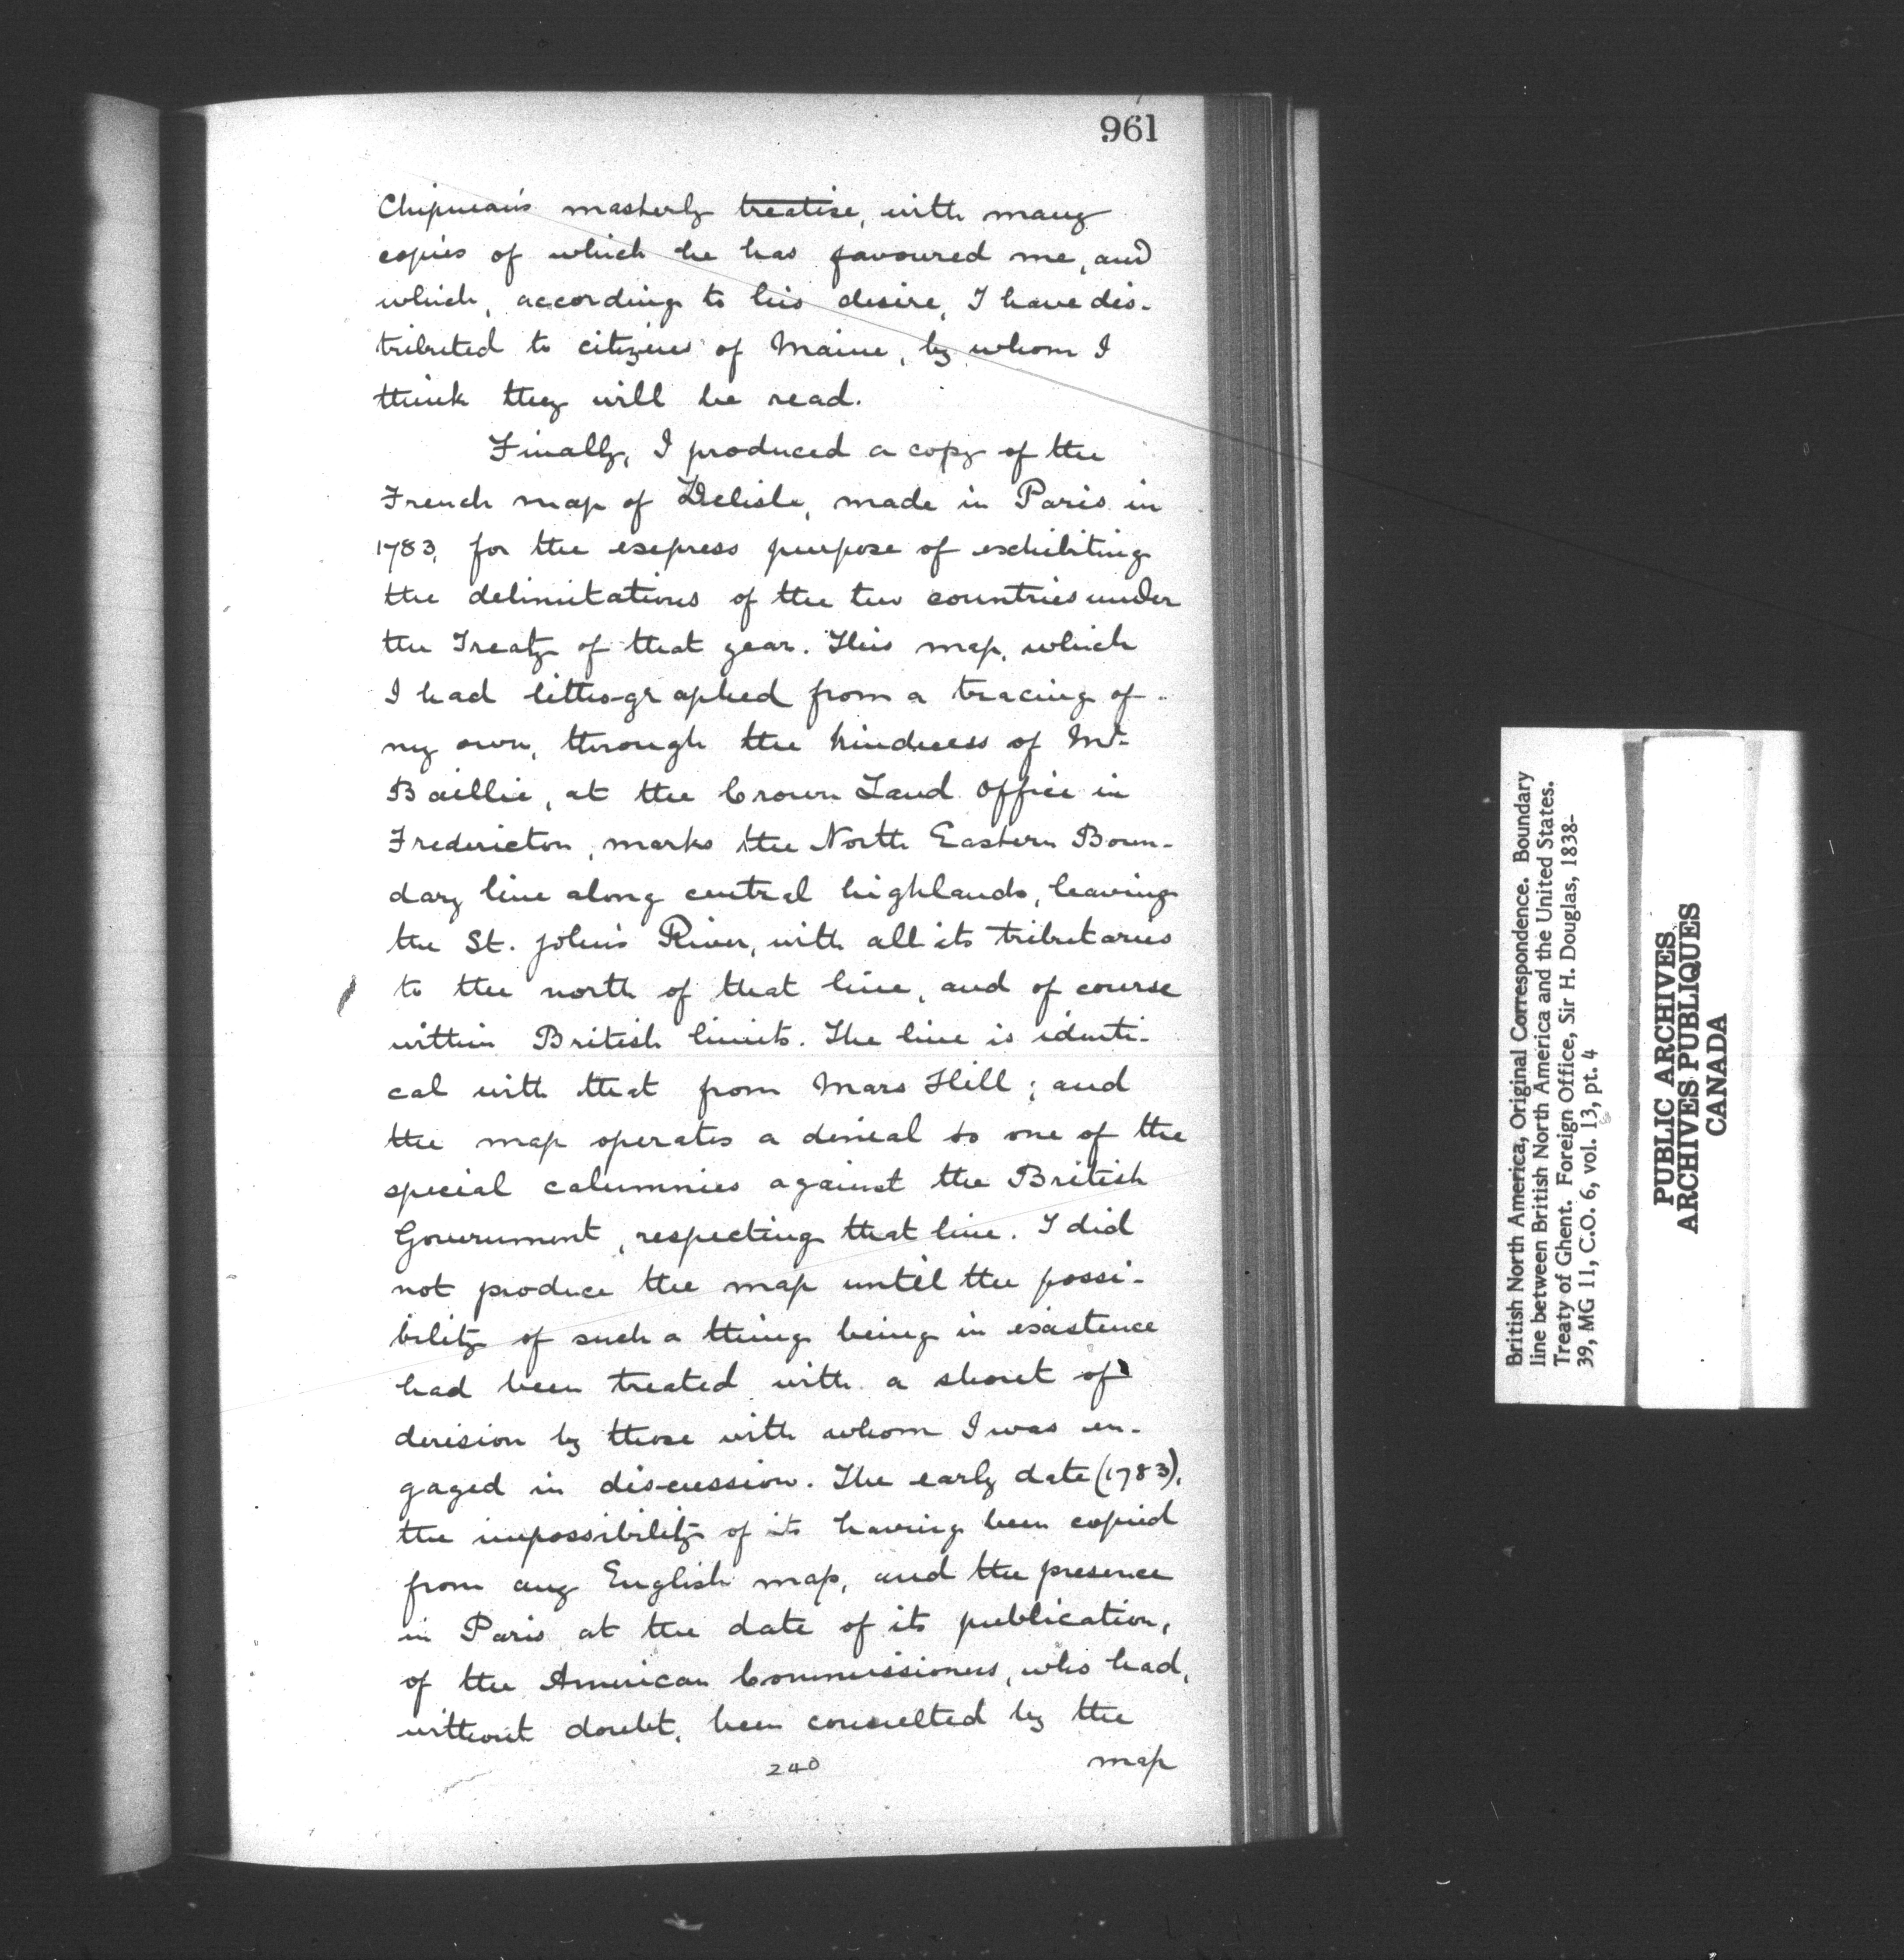 961
Chipman's masterly treatise, with many
copies of which he has favoured me, and
which, according to his desire, I have dis-
tributed to citizens of Maine, by whom I
think they will be read.
Finally, I produced a copy of the
French map of Delisle, made in Paris in
1783, for the express purpose of exhibiting
the delimitations of the two countries under
the Treaty of that year. This map, which
I had litho-graphed from a tracing of
my own, through the kindness of Mr.
Baillie, at the Crown Land Office in
Fredericton, marks the North Eastern Boun-
dary line along central highlands, leaving
the St. John's River, with all its tributaries
to the north of that line, and of course
within British limits. The line is identi-
cal with that from Mars Hill; and
the map operates a denial to one of the
special calumnies against the British
Government, respecting that line. I did
not produce the map until the possi-
bility of such a thing being in existence
had been treated with a shout of
derision by those with whom I was en-
gaged in discussion. The early date (1783),
the impossibility of its having been copied
from any English map, and the presence
in Paris at the date of its publication,
of the American Commissioners, who had,
without doubt, been consulted by the
map
240
British North America, Original Correspondence. Boundary
line between British North America and the United States.
Treaty of Ghent. Foreign Office, Sir H. Douglas, 1838-
39, MG 11, C.O. 6, vol. 13, pt. 4
PUBLIC ARCHIVES
ARCHIVES PUBLIQUES
CANADA